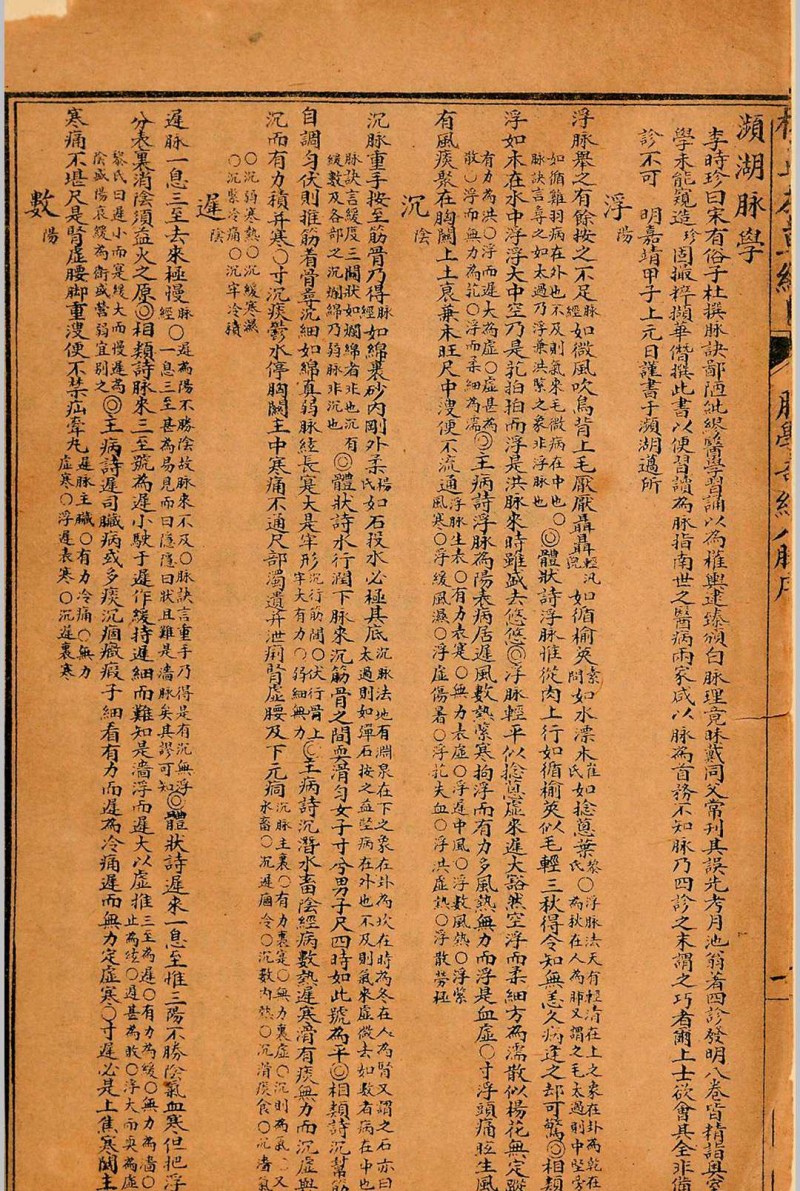 瀕湖脉學
李時珍曰宋有俗子杜撰脉訣鄙陋紕繆醫學習誦以為權輿逮臻頒白脉理竟昧戴同父常刊其誤先考月池翁著四診發明八卷皆精詣奧室
學未能窺造珍因撮粹擷華僭撰此書以便習讀為脉指南世之醫病兩家咸以脉為首務不知脉乃四診之末謂之巧者爾上士欲會其全非備
診不可　明嘉靖甲子上元日謹書于瀕湖薖所
浮陽
浮脉舉之有餘按之不足脉經如微風吹鳥背上毛厭厭聶聶輕汎貌如循榆莢素問如水漂木崔氏如捻葱葉黎氏○浮脉法天有輕清在上之象在卦為乾在
為秋在人為肺又謂之毛太過則中堅旁
如循雞羽病在外也不及則氣來毛微病在中也○
脉訣言尋之如太過乃浮兼洪緊之象非浮脉也
◎體狀詩浮脉惟從肉上行如循榆莢似毛輕三秋得令知無恙久病逢之却可驚◎相類
浮如木在水中浮浮大中空乃是芤拍拍而浮是洪脉來時雖盛去悠悠◎浮脉輕平似捻葱虛來遲大豁然空浮而柔細方為濡散似楊花無定蹤
有力為洪○浮而遲大為虛○虛甚為
散○浮而無力為芤○浮而柔細為濡
◎主病詩浮脉為陽表病居遲風數熱緊寒拘浮而有力多風熱無力而浮是血虛○寸浮頭痛眩生風
有風痰聚在胸關上土衰兼木旺尺中溲便不流通浮脉主表○有力表寔○無力表虛○浮遲中風○浮數風熱○浮緊
風寒○浮緩風濕○浮虛傷暑○浮芤失血○浮洪虛熱○浮散勞極
沉陰
沉脉重手按至筋骨乃得脉經如綿裹砂內剛外柔楊氏如石投水必極其底沉脉法地有淵泉在下之象在卦為坎在時為冬在人為腎又謂之石亦曰
太過則如彈石按之益堅病在外也不及則氣來虛微去如數者病在中也
脉訣言緩度三關狀如爛綿者非也沉有
緩數及各部之沉爛綿乃弱脉非沉也
◎體狀詩水行潤下脉來沉筋骨之間耎滑勻女子寸兮男子尺四時如此號為平◎相類詩沉幫筋
自調勻伏則推筋着骨尋沉細如綿真弱脉絃長寔大是牢形沉行筋間○伏行骨上
牢大有力○弱細無力
◎主病詩沉潛水畜陰經病數熱遲寒滑有痰無力而沉虛與
沉而有力積并寒○寸沉痰鬱水停胸關主中寒痛不通尺部濁遺并泄痢腎虛腰及下元痌沉脉主裏○有力裏寔○無力裏虛○沉則為氣○又
水畜○沉遲痼冷○沉數內熱○沉滑痰食○沉濇氣
○沉弱寒熱○沉緩寒濕
○沉緊冷痛○沉牢冷積
遲陰
遲脉一息三至去來極慢脉經○遲為陽不勝陰故脉來不及○脉訣言重手乃得是有沉無浮
一息三至甚為易見而曰隱隱曰狀且難是濇脉矣其謬可知
◎體狀詩遲來一息至惟三陽不勝陰氣血寒但把浮
分表裏消陰須益火之原◎相類詩脉來三至號為遲小駃于遲作緩持遲細而難知是濇浮而遲大以虛推三至為遲○有力為緩○無力為濇○
止為结○遲甚為敗○浮大而耎為虛
黎氏曰遲小而寔緩大而慢遲為
陰盛陽衰緩為衛盛營弱宜別之
◎主病詩遲司臟病或多痰沉痼癥瘕子細看有力而遲為冷痛遲而無力定虛寒○寸遲必是上焦寒關主
寒痛不堪尺是腎虛腰脚重溲便不禁疝牽丸遲脉主臟○有力冷痛○無力
虛寒○浮遲表寒○沉遲裏寒
數陽